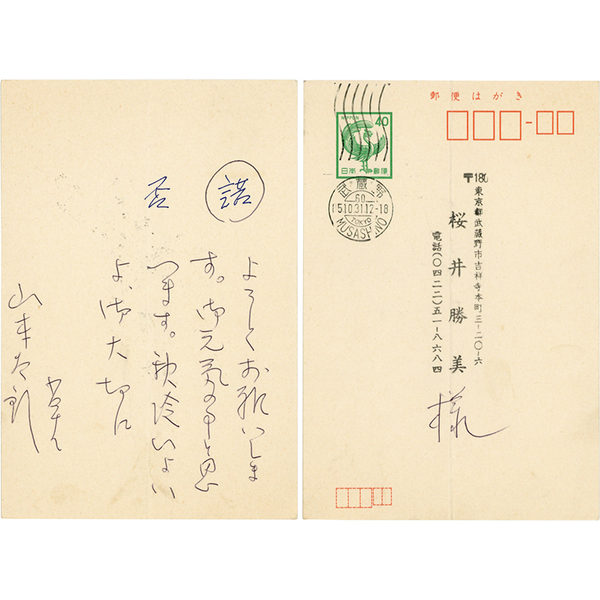 諾
否
よろしくお願いしま
す。御元気の事と思い
つます。秋冷いよい
よ、御大切に
山本太郎
郵便はがき
40
日本郵便
武蔵野
60
15.10.31.12-18
TOKYO
MUSASHINO
〒180
東京都武蔵野市吉祥寺本町三ー二〇ー六
桜井勝美
様
電話(〇四二二)五一ー八六八四